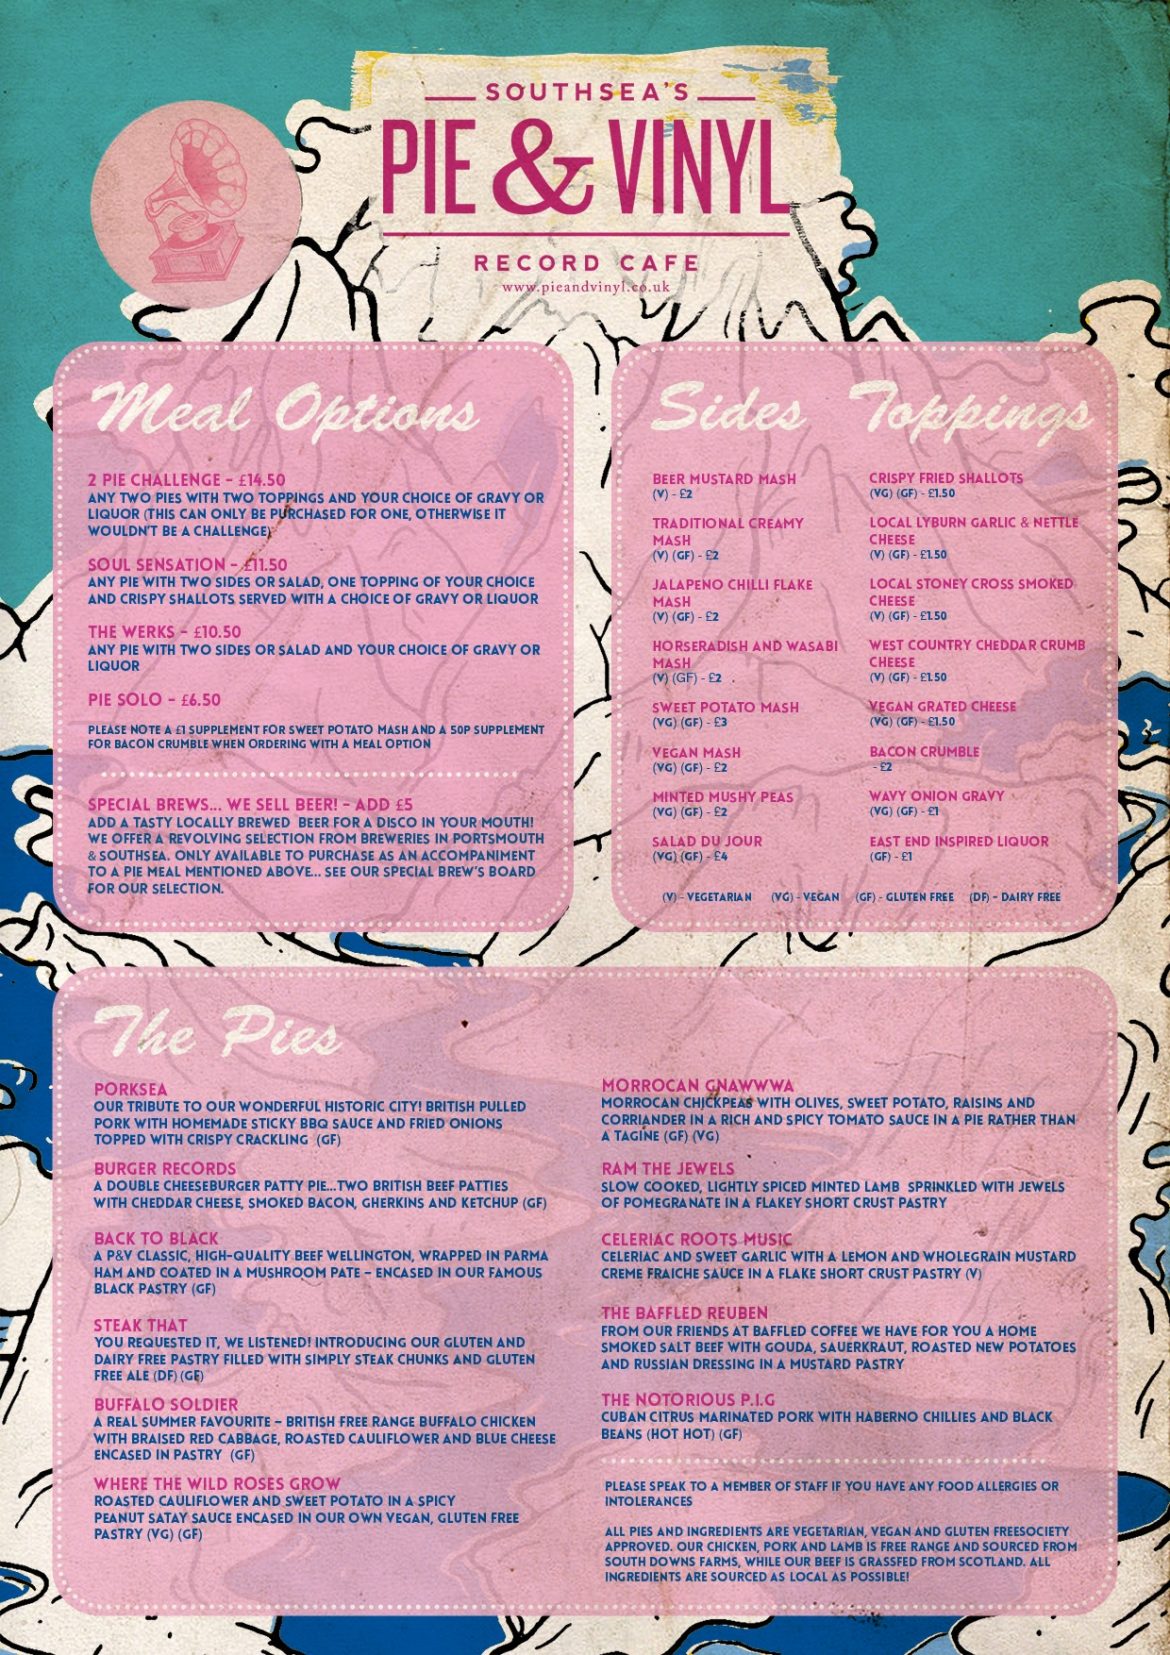 SOUTHSEA'S
PIE & VINYL
RECORD CAFE
www.pieandvinyl.co.uk
Meal Options
2 PIE CHALLENGE - £14.50
ANY TWO PIES WITH TWO TOPPINGS AND YOUR CHOICE OF GRAVY OR
LIQUOR (THIS CAN ONLY BE PURCHASED FOR ONE, OTHERWISE IT
WOULDN'T BE A CHALLENGE)
SOUL SENSATION - £11.50
ANY PIE WITH TWO SIDES OR SALAD, ONE TOPPING OF YOUR CHOICE
AND CRISPY SHALLOTS SERVED WITH A CHOICE OF GRAVY OR LIQUOR
THE WERKS - £10.50
ANY PIE WITH TWO SIDES OR SALAD AND YOUR CHOICE OF GRAVY OR
LIQUOR
PIE SOLO - £6.50
PLEASE NOTE A £1 SUPPLEMENT FOR SWEET POTATO MASH AND A 50P SUPPLEMENT
FOR BACON CRUMBLE WHEN ORDERING WITH A MEAL OPTION
SPECIAL BREWS... WE SELL BEER! - ADD £5
ADD A TASTY LOCALLY BREWED BEER FOR A DISCO IN YOUR MOUTH!
WE OFFER A REVOLVING SELECTION FROM BREWERIES IN PORTSMOUTH
& SOUTHSEA. ONLY AVAILABLE TO PURCHASE AS AN ACCOMPANIMENT
TO A PIE MEAL MENTIONED ABOVE... SEE OUR SPECIAL BREW'S BOARD
FOR OUR SELECTION.
Sides
BEER MUSTARD MASH
(V) - £2
TRADITIONAL CREAMY
MASH
(V) (GF) - £2
JALAPENO CHILLI FLAKE
MASH
(V) (GF) - £2
HORSERADISH AND WASABI
MASH
(V) (GF) - £2
SWEET POTATO MASH
(VG) (GF) - £3
VEGAN MASH
(VG) (GF) - £2
MINTED MUSHY PEAS
(VG) (GF) - £2
SALAD DU JOUR
(VG) (GF) - £4
Toppings
CRISPY FRIED SHALLOTS
(VG) (GF) - £1.50
LOCAL LYBURN GARLIC & NETTLE
CHEESE
(V) (GF) - £1.50
LOCAL STONEY CROSS SMOKED
CHEESE
(V) (GF) - £1.50
WEST COUNTRY CHEDDAR CRUMB
CHEESE
(V) (GF) - £1.50
VEGAN GRATED CHEESE
(VG) (GF) - £1.50
BACON CRUMBLE
- £2
WAVY ONION GRAVY
(VG) (GF) - £1
EAST END INSPIRED LIQUOR
(GF) - £1
(V) - VEGETARIAN (VG) - VEGAN (GF) - GLUTEN FREE (DF) - DAIRY FREE
The Pies
PORKSEA
OUR TRIBUTE TO OUR WONDERFUL HISTORIC CITY! BRITISH PULLED
PORK WITH HOMEMADE STICKY BBQ SAUCE AND FRIED ONIONS
TOPPED WITH CRISPY CRACKLING (GF)
BURGER RECORDS
A DOUBLE CHEESEBURGER PATTY PIE...TWO BRITISH BEEF PATTIES
WITH CHEDDAR CHEESE, SMOKED BACON, GHERKINS AND KETCHUP (GF)
BACK TO BLACK
A P&V CLASSIC, HIGH-QUALITY BEEF WELLINGTON, WRAPPED IN PARMA
HAM AND COATED IN A MUSHROOM PATE - ENCASED IN OUR FAMOUS
BLACK PASTRY (GF)
STEAK THAT
YOU REQUESTED IT, WE LISTENED! INTRODUCING OUR GLUTEN AND
DAIRY FREE PASTRY FILLED WITH SIMPLY STEAK CHUNKS AND GLUTEN
FREE ALE (DF) (GF)
BUFFALO SOLDIER
A REAL SUMMER FAVOURITE - BRITISH FREE RANGE BUFFALO CHICKEN
WITH BRAISED RED CABBAGE, ROASTED CAULIFLOWER AND BLUE CHEESE
ENCASED IN PASTRY (GF)
WHERE THE WILD ROSES GROW
ROASTED CAULIFLOWER AND SWEET POTATO IN A SPICY
PEANUT SATAY SAUCE ENCASED IN OUR OWN VEGAN, GLUTEN FREE
PASTRY (VG) (GF)
MORROCAN GNAWWWA
MORROCAN CHICKPEAS WITH OLIVES, SWEET POTATO, RAISINS AND
CORRIANDER IN A RICH AND SPICY TOMATO SAUCE IN A PIE RATHER THAN
A TAGINE (GF) (VG)
RAM THE JEWELS
SLOW COOKED, LIGHTLY SPICED MINTED LAMB SPRINKLED WITH JEWELS
OF POMEGRANATE IN A FLAKEY SHORT CRUST PASTRY
CELERIAC ROOTS MUSIC
CELERIAC AND SWEET GARLIC WITH A LEMON AND WHOLEGRAIN MUSTARD
CREME FRAICHE SAUCE IN A FLAKE SHORT CRUST PASTRY (V)
THE BAFFLED REUBEN
FROM OUR FRIENDS AT BAFFLED COFFEE WE HAVE FOR YOU A HOME
SMOKED SALT BEEF WITH GOUDA, SAUERKRAUT, ROASTED NEW POTATOES
AND RUSSIAN DRESSING IN A MUSTARD PASTRY
THE NOTORIOUS P.I.G
CUBAN CITRUS MARINATED PORK WITH HABERNO CHILLIES AND BLACK
BEANS (HOT HOT) (GF)
PLEASE SPEAK TO A MEMBER OF STAFF IF YOU HAVE ANY FOOD ALLERGIES OR
INTOLERANCES
ALL PIES AND INGREDIENTS ARE VEGETARIAN, VEGAN AND GLUTEN FREESOCIETY
APPROVED. OUR CHICKEN, PORK AND LAMB IS FREE RANGE AND SOURCED FROM
SOUTH DOWNS FARMS, WHILE OUR BEEF IS GRASSFED FROM SCOTLAND. ALL
INGREDIENTS ARE SOURCED AS LOCAL AS POSSIBLE!